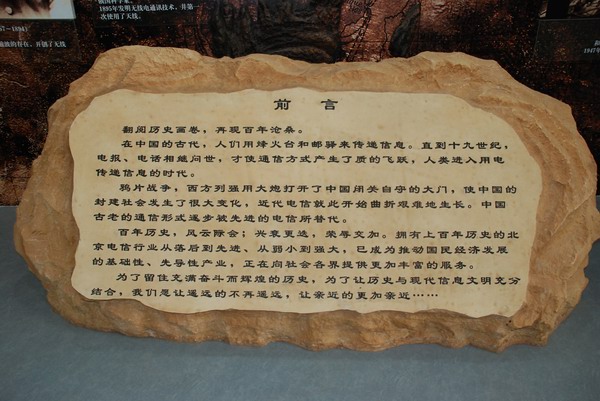 俄国科学家,
1895年发明无线电通讯技术,并第一
次使用了天线。
7—1894)
磁波的存在,并创了无线
1947年
前 言
翻阅历史画卷,再现百年沧桑。
在中国的古代,人们用烽火台和邮驿来传递信息。直到十九世纪,
电报、电话相继问世,才使通信方式产生了质的飞跃,人类进入用电
传递信息的时代。
鸦片战争,西方列强用大炮打开了中国闭关自守的大门,使中国的
封建社会发生了很大变化,近代电信就此开始曲折艰难地生长。中国
古老的通信形式逐步被先进的电信所替代。
百年历史,风云际会;兴衰更迭,荣辱交加。拥有上百年历史的北
京电信行业从落后到先进、从弱小到强大,已成为推动国民经济发展
的基础性、先导性产业,正在向社会各界提供更加丰富的服务。
为了留住充满奋斗而辉煌的历史,为了让历史与现代信息文明充分
结合,我们愿让遥远的不再遥远,让亲近的更加亲近……